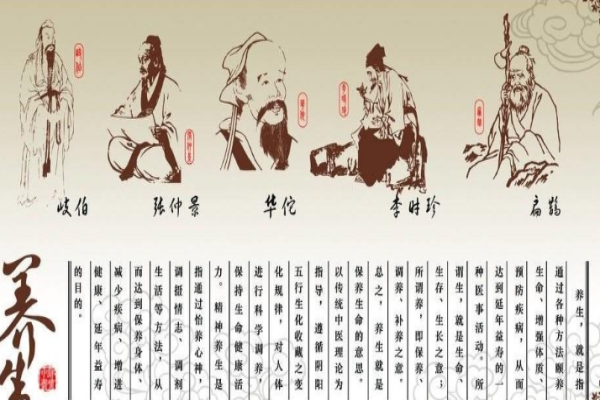 岐伯
张仲景
华佗
李时珍
扁鹊
养生，就是指
通过各种方法颐养
生命、增强体质、
预防疾病，从而
达到延年益寿的一
种医事活动。所
谓生，就是生命、
生存、生长之意；
所谓养，即保养、
调养、补养之意。
总之，养生就是
保养生命的意思。
以传统中医理论为
指导，遵循阴阳
五行生化收藏之变
化规律，对人体
进行科学调养，
保持生命健康活
力。精神养生是
指通过怡养心神，
调摄情志、调剂
生活等方法，从
而达到保养身体、
减少疾病、增进
健康、延年益寿
的目的。
养生